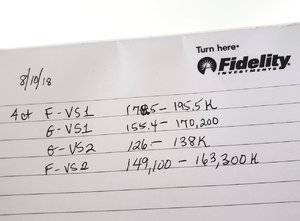 Turn here®
Fidelity
INVESTMENTS
8/10/18
4ct F-VS1 178.5-195.5K
G-VS1 155.4-170,200
G-VS2 126-138K
F-VS2 149,100-163,300K